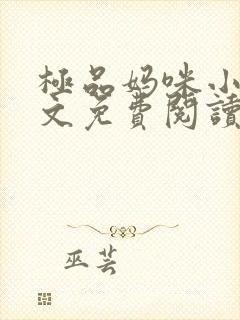 極品妈咪小
文免費閱讀
巫芸